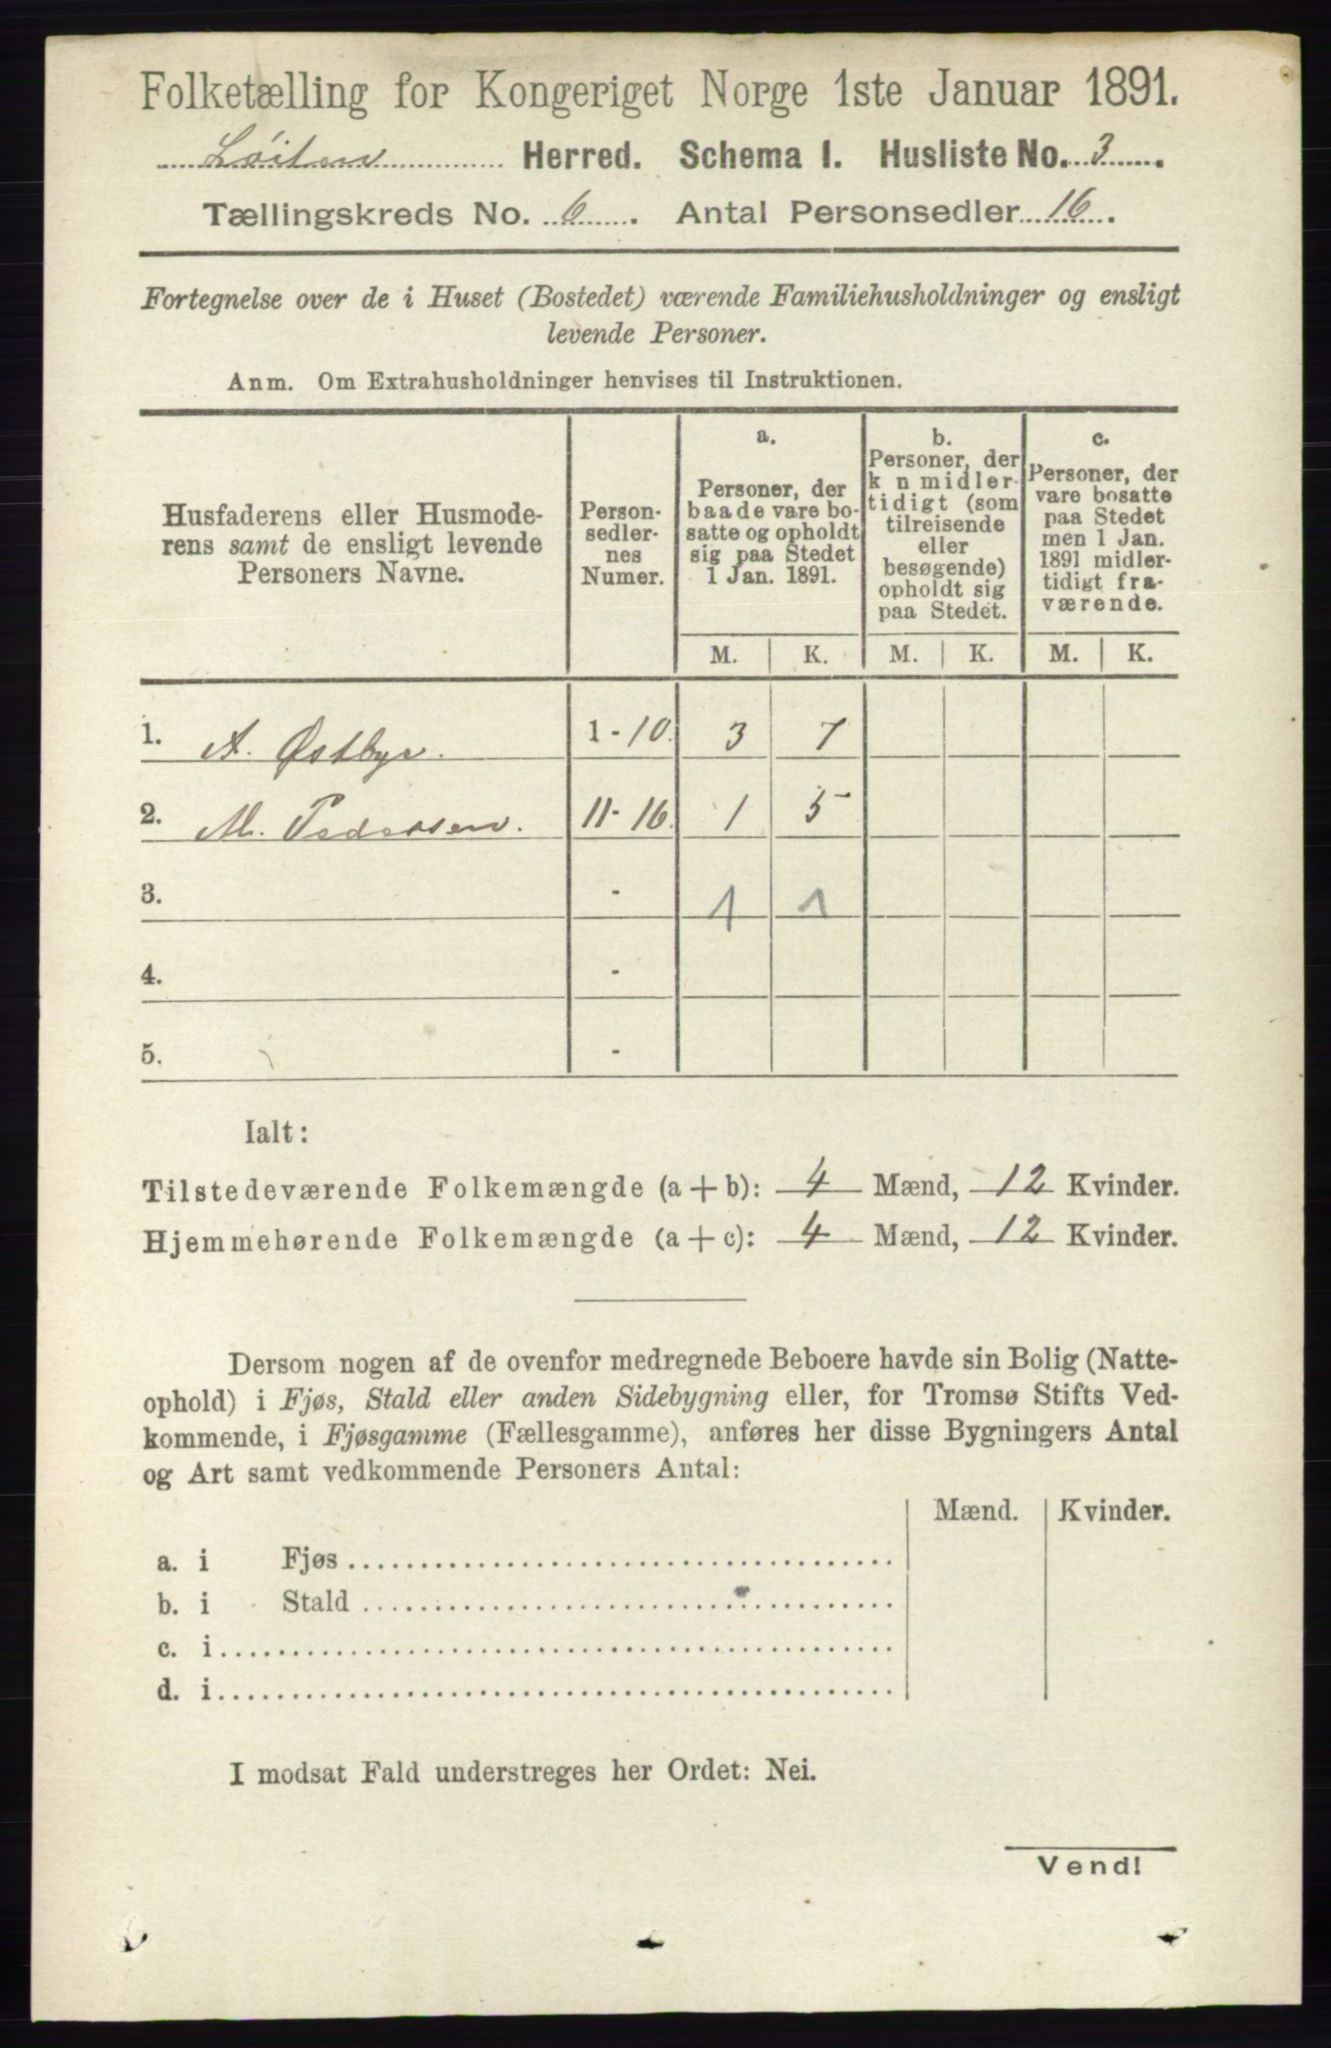 Folketælling for Kongeriget Norge 1ste Januar 1891.
Løiten Herred. Schema I. Husliste No. 3.
Tællingskreds No. 6. Antal Personsedler 16.
Fortegnelse over de i Huset (Bostedet) værende Familiehusholdninger og ensligt
levende Personer.
Anm. Om Extrahusholdninger henvises til Instruktionen.
Husfaderens eller Husmode-
rens samt de ensligt levende
Personers Navne.
Person-
sedler-
nes
Numer.
a.
Personer, der
baade vare bo-
satte og opholdt
sig paa Stedet
1 Jan. 1891.
b.
Personer, der
k n midler-
tidigt (som
tilreisende
eller
besøgende)
opholdt sig
paa Stedet.
c.
Personer, der
vare bosatte
paa Stedet
men 1 Jan.
1891 midler-
tidigt fra-
værende.
M. K. M. K. M. K.
1. A. Østbye. 1-10. 3 7
2. M. Pedersen. 11-16. 1 5
3. - 1 1
4. -
5. -
Ialt:
Tilstedeværende Folkemængde (a + b): 4 Mænd, 12 Kvinder.
Hjemmehørende Folkemængde (a + c): 4 Mænd, 12 Kvinder.
Dersom nogen af de ovenfor medregnede Beboere havde sin Bolig (Natte-
ophold) i Fjøs, Stald eller anden Sidebygning eller, for Tromsø Stifts Ved-
kommende, i Fjøsgamme (Fællesgamme), anføres her disse Bygningers Antal
og Art samt vedkommende Personers Antal:
Mænd. Kvinder.
a. i Fjøs
b. i Stald
c. i
d. i
I modsat Fald understreges her Ordet: Nei.
Vend!